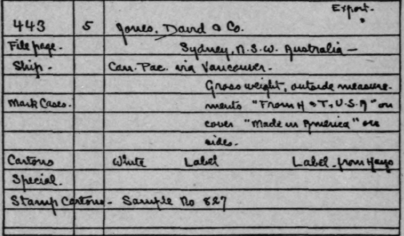 Export.
443 5 Jones, David & Co.
File page. Sydney, N.S.W. Australia -
Ship. Can. Pac. via Vancouver.
Gross weight, outside measure-
Mark Cases. ments "From H & T, U.S.A" on
cover "Made in America" on
sides.
Cartons White Label Label from Mayo
Special.
Stamp Cartons - Sample No 827